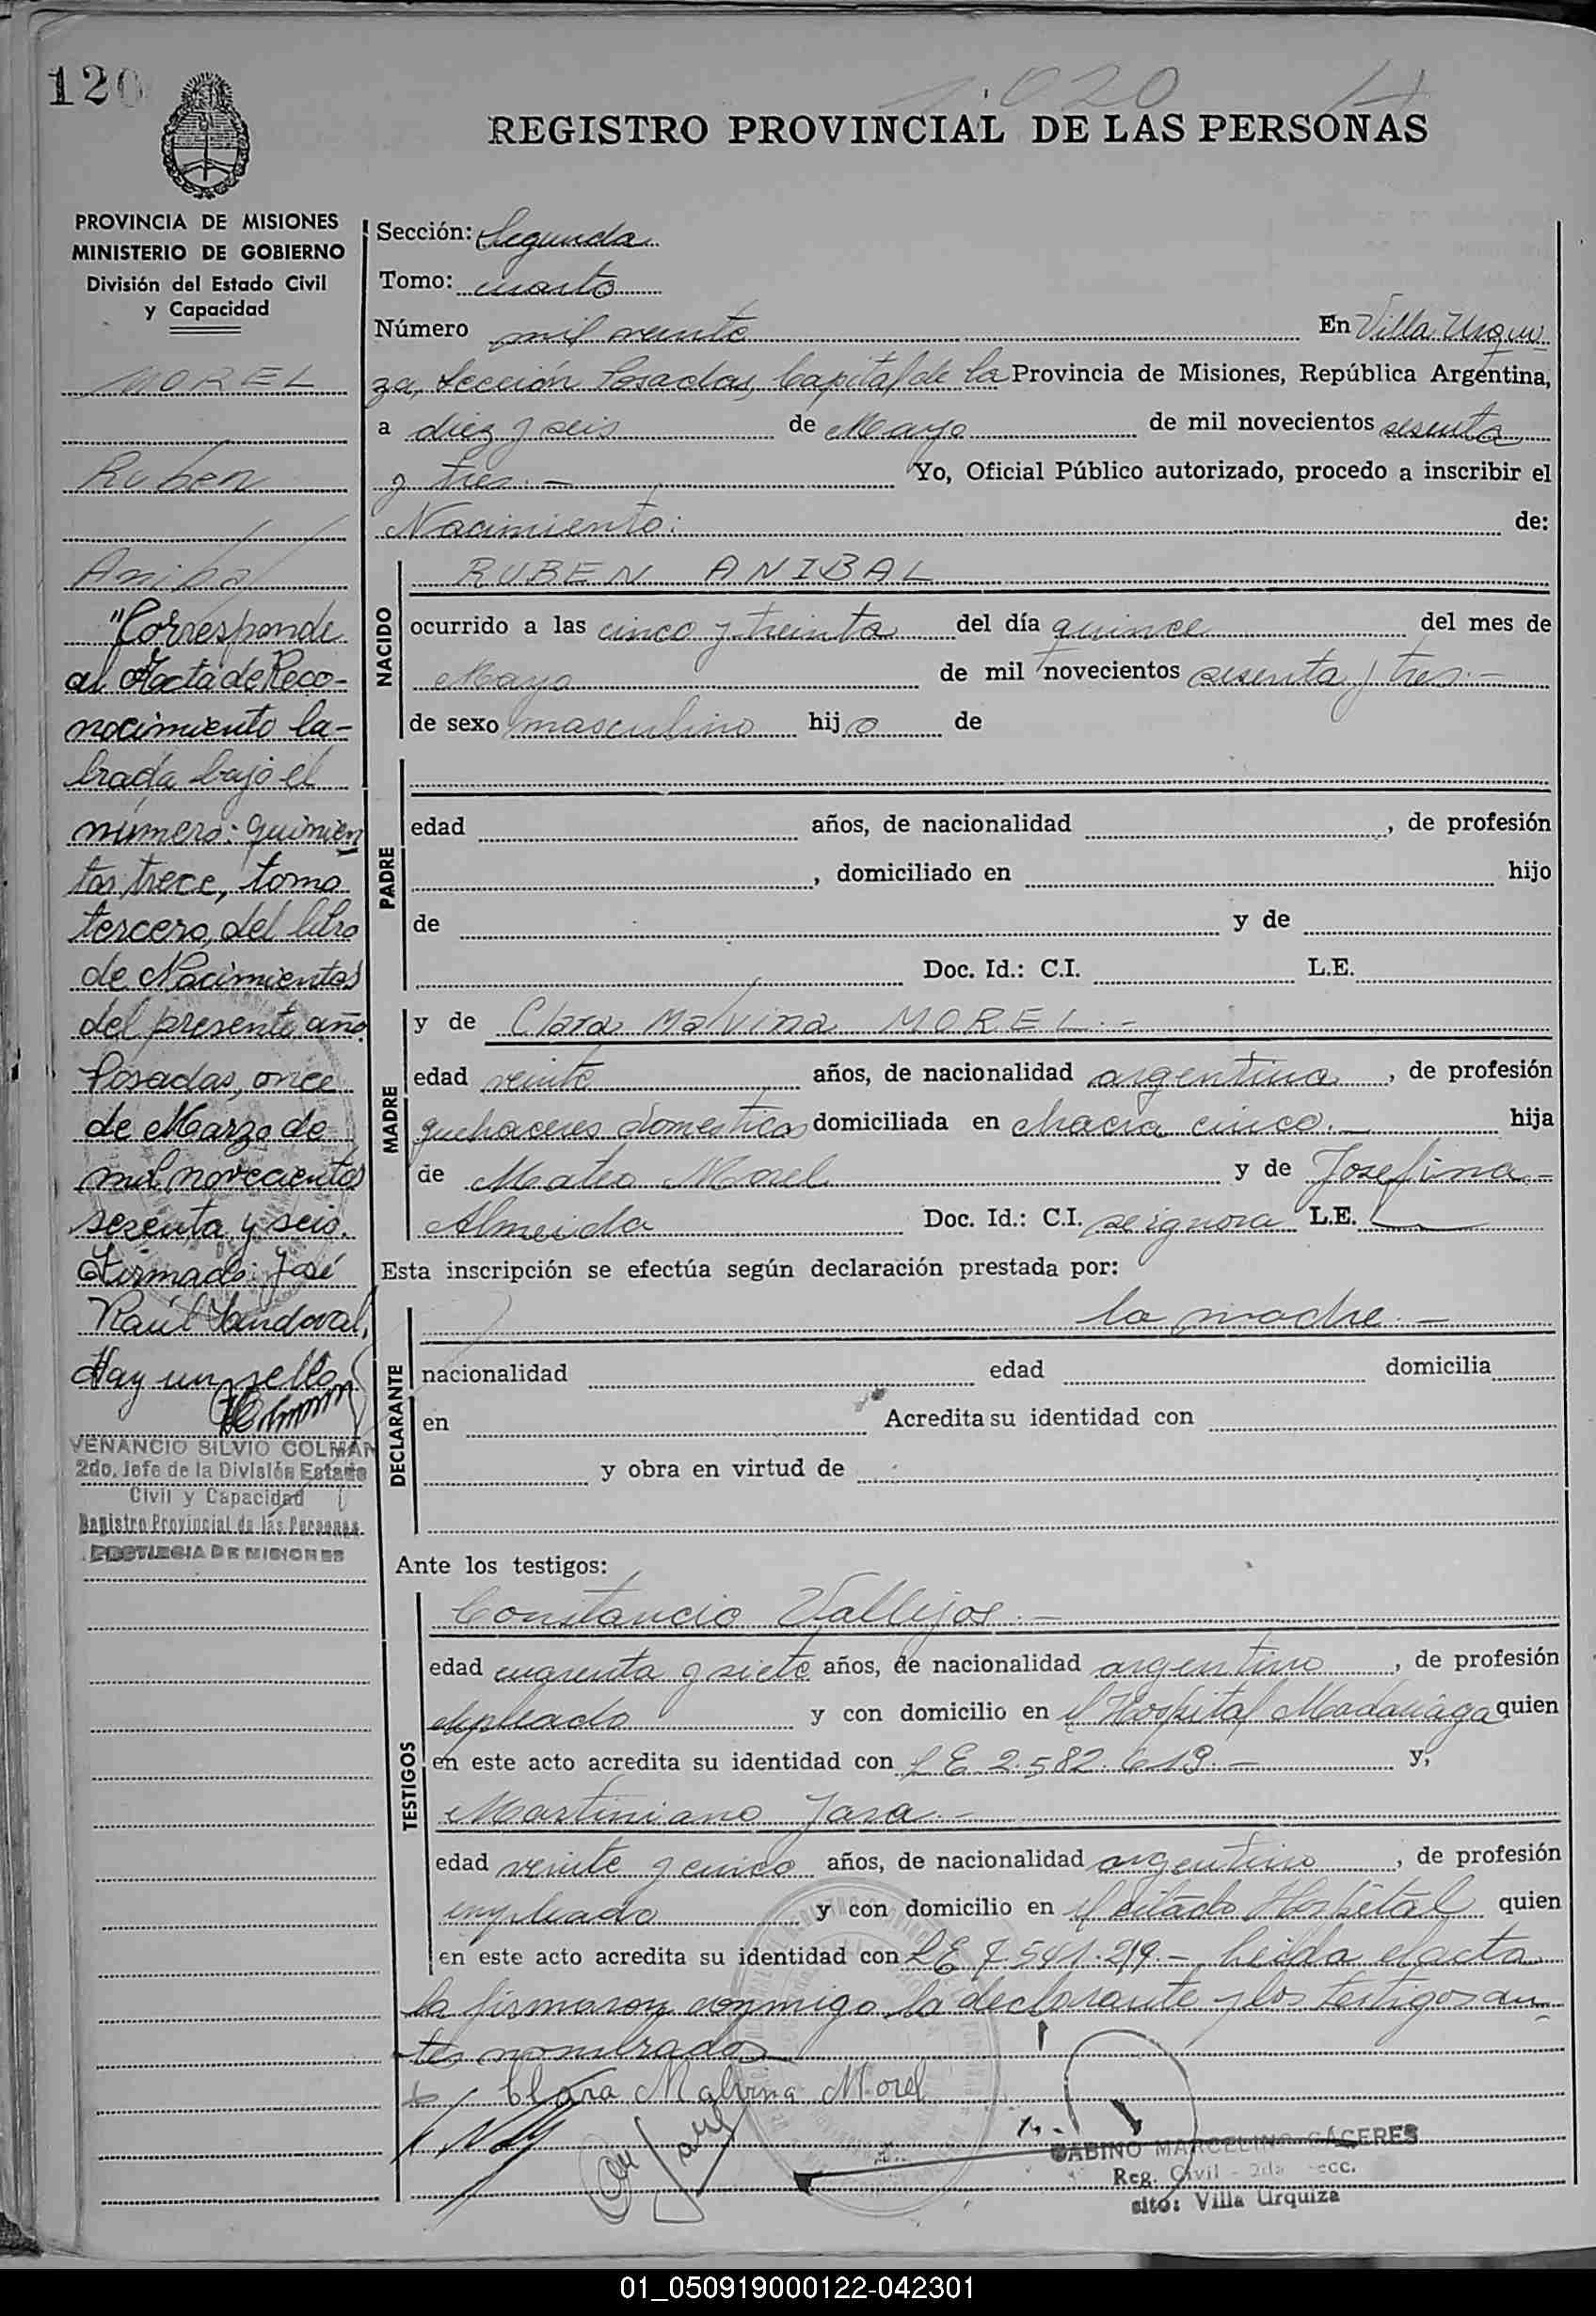 120
1.020
REGISTRO PROVINCIAL DE LAS PERSONAS
PROVINCIA DE MISIONES
MINISTERIO DE GOBIERNO
División del Estado Civil
y Capacidad
MOREL
Ruben
Anibal
"Corresponde
al Acta de Reco-
nocimiento la-
brada bajo el
número: quinien
tos trece, tomo
tercero, del libro
de Nacimientos
del presente año.
Posadas, once
de Marzo de
mil novecientos
sesenta y seis.
Firmado: José
Raúl Sandoval,
Hay un sello
VENANCIO SILVIO COLMAN
2do. Jefe de la División Estado
Civil y Capacidad
Registro Provincial de las Personas
PROVINCIA DE MISIONES
Sección: Segunda
Tomo: cuarto
Número mil veinte En Villa Urqui
za, Sección Posadas, Capital de la Provincia de Misiones, República Argentina,
a diez y seis de Mayo de mil novecientos sesenta
y tres.- Yo, Oficial Público autorizado, procedo a inscribir el
Nacimiento: de:
NACIDO
RUBEN ANIBAL
ocurrido a las cinco y treinta del día quince del mes de
Mayo de mil novecientos sesenta y tres.-
de sexo masculino hijo de
PADRE
edad años, de nacionalidad , de profesión
, domiciliado en hijo
de y de
Doc. Id.: C.I. L.E.
MADRE
y de Clara Malvina MOREL.-
edad veinte años, de nacionalidad argentina , de profesión
quehaceres domesticos domiciliada en chacra cinco.- hija
de Mateo Morel y de Josefina
Almeida Doc. Id.: C.I. se ignora L.E.
Esta inscripción se efectúa según declaración prestada por:
DECLARANTE
la madre.-
nacionalidad edad domicilia
en Acredita su identidad con
y obra en virtud de
Ante los testigos:
TESTIGOS
Constancio Vallejos.-
edad cuarenta y siete años, de nacionalidad argentino , de profesión
empleado y con domicilio en el Hospital Madariaga quien
en este acto acredita su identidad con L E 2.582.619.- y,
Martiniano Jara.-
edad veinte y cinco años, de nacionalidad argentino , de profesión
empleado y con domicilio en el citado Hospital quien
en este acto acredita su identidad con LE 7.541.219.- Leida el acta
la firmaron conmigo la declarante y los testigos an
tes nombrados
Clara Malvina Morel
GABINO MARCELINO CÁCERES
Reg. Civil - 2da Secc.
sito: Villa Urquiza
01_050919000122-042301